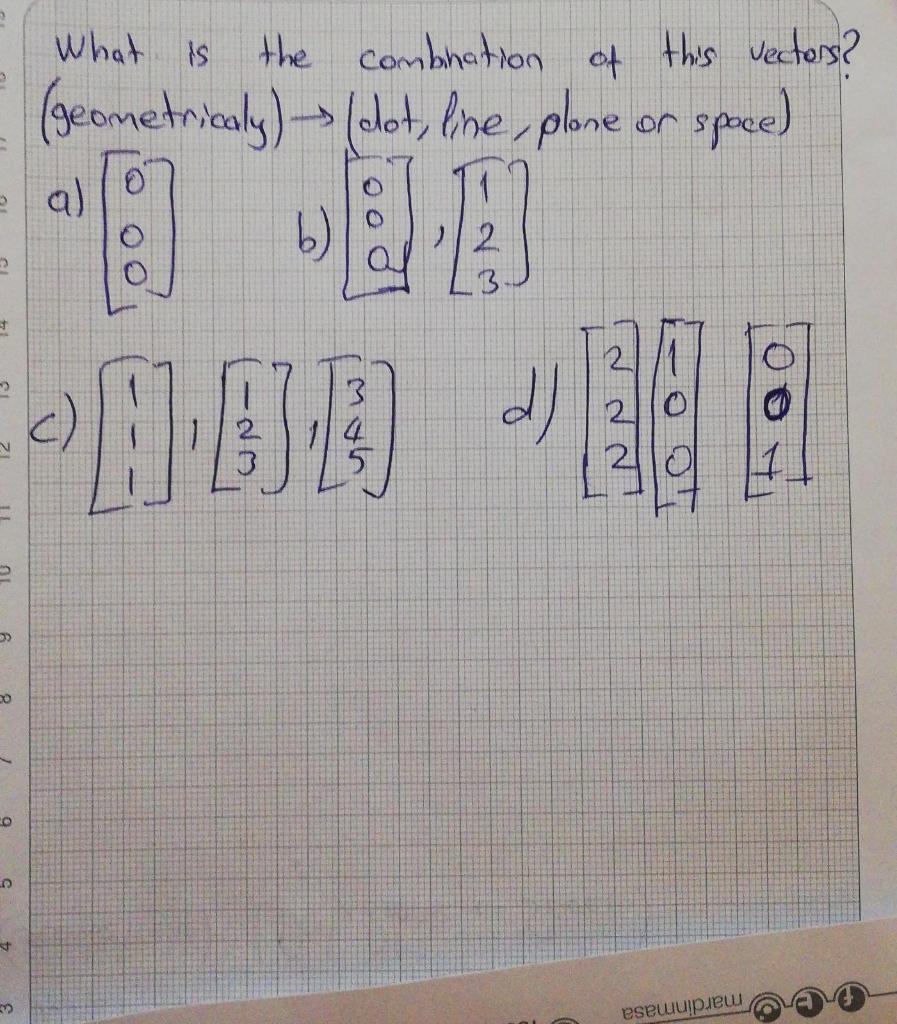 What is the combination of this vectors?
(geometricaly) → (dot, line, plane or space)
a) [0 0 0] b) [0 0 0] , [1 2 3]
c) [1 1 1] , [1 2 3] , [3 4 5] d) [2 2 2] [1 0 0] [0 0 1]
17
16
15
14
13
12
11
10
9
8
7
6
5
4
3
mardinmasa